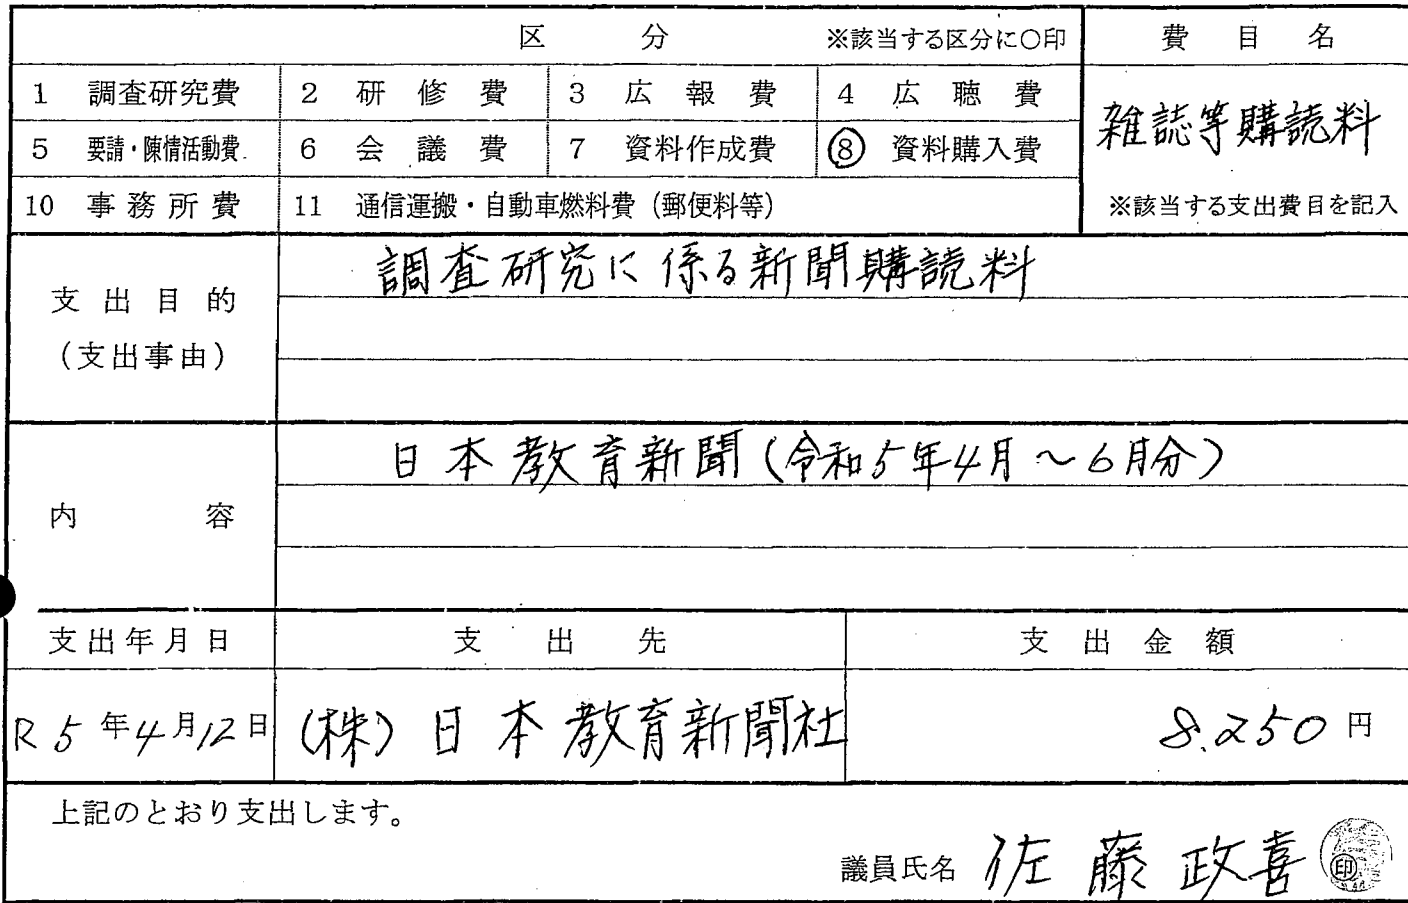 区 分 ※該当する区分に○印 費 目 名
1 調査研究費 2 研 修 費 3 広 報 費 4 広 聴 費
雑誌等購読料
5 要請・陳情活動費 6 会 議 費 7 資料作成費 ⑧ 資料購入費
10 事 務 所 費 11 通信運搬・自動車燃料費（郵便料等） ※該当する支出費目を記入
調査研究に係る新聞購読料
支 出 目 的
（支出事由）
日本教育新聞(令和5年4月～6月分)
内 容
支出年月日 支 出 先 支 出 金 額
R5年4月12日 (株)日本教育新聞社 8.250円
上記のとおり支出します。
議員氏名 佐藤政喜 ㊞